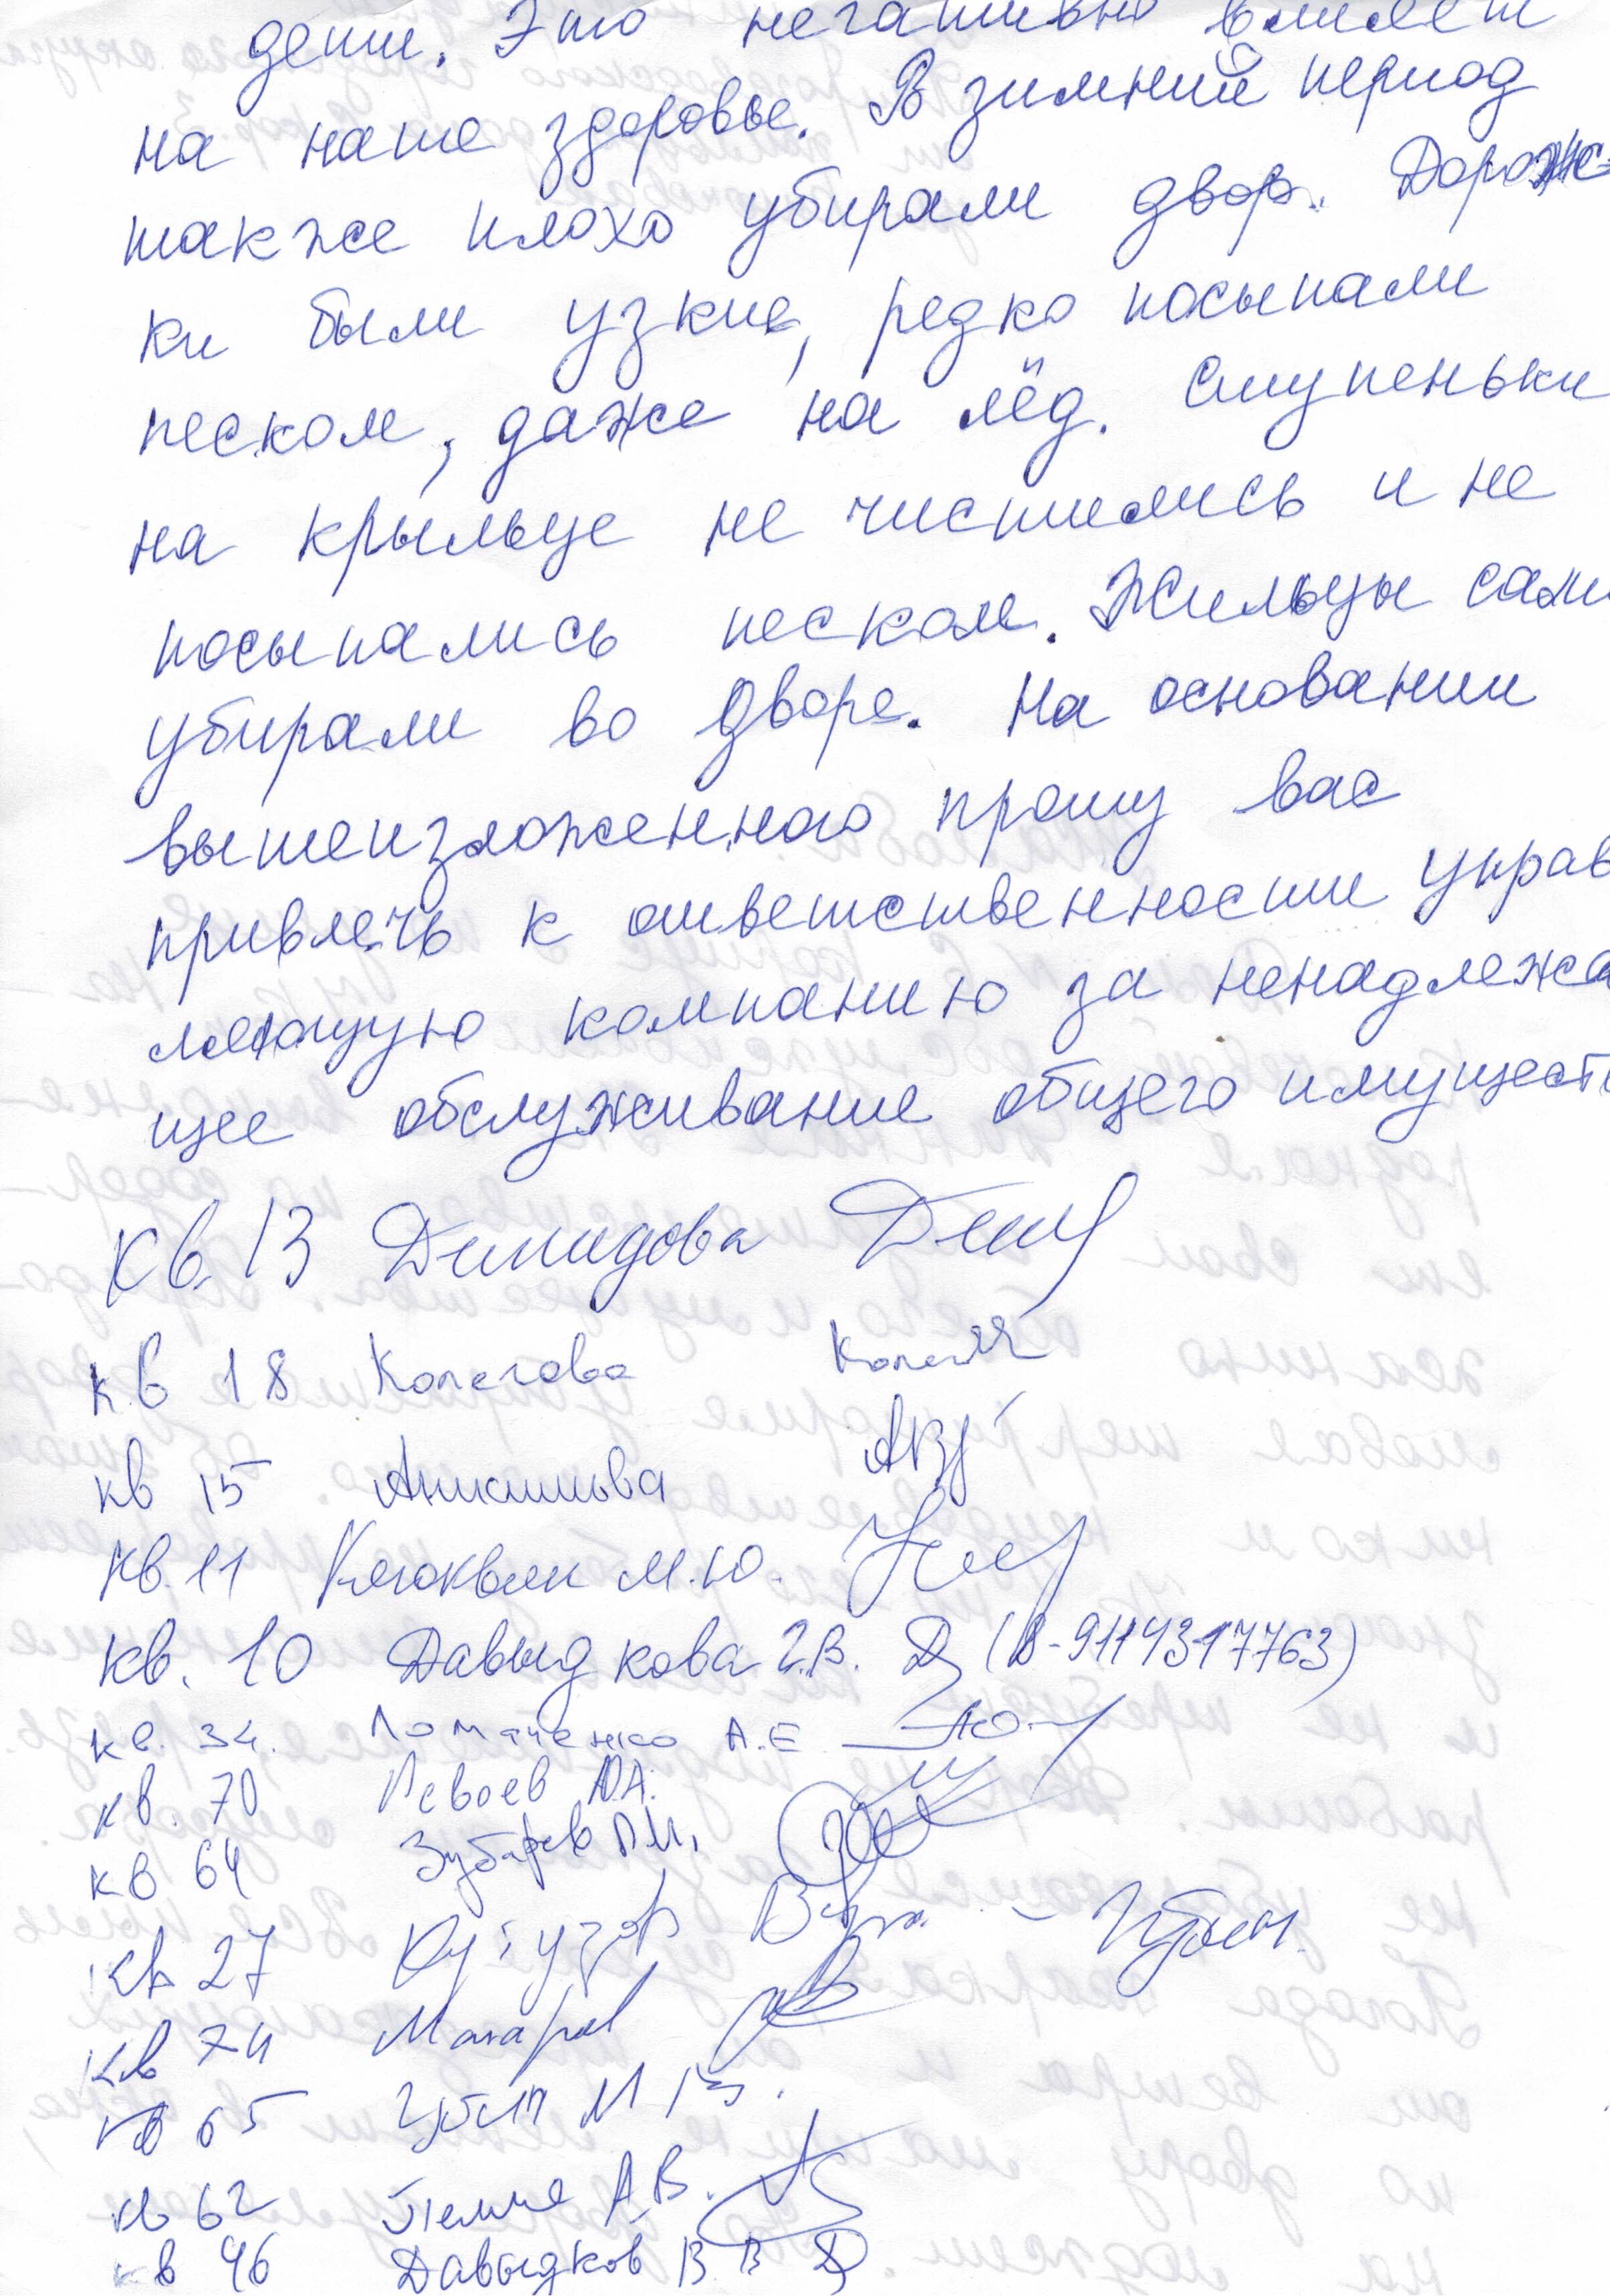 дети. Это негативно влияет
на наше здоровье. В зимний период
также плохо убирали двор. Дорож-
ки были узкие, редко посыпали
песком, даже на лёд. Ступеньки
на крыльце не чистились и не
посыпались песком. Жильцы сами
убирали во дворе. На основании
вышеизложенного прошу вас
привлечь к ответственности управ
ляющую компанию за ненадлежа
щее обслуживание общего имуществ
кв. 13 Демидова
кв 18 Копегова
кв 15
кв. 11 Клюквин М.Ю.
кв. 10 Давыдкова Г.В. Д (8-9114317763)
кв. 34. Ломаченко А.Е
кв. 70 Ю.А.
кв 64 Зубарев П.И.
кв 27
кв 74 Макаров
кв 65
кв 62 А.В.
кв 46 Давыдков В В Д